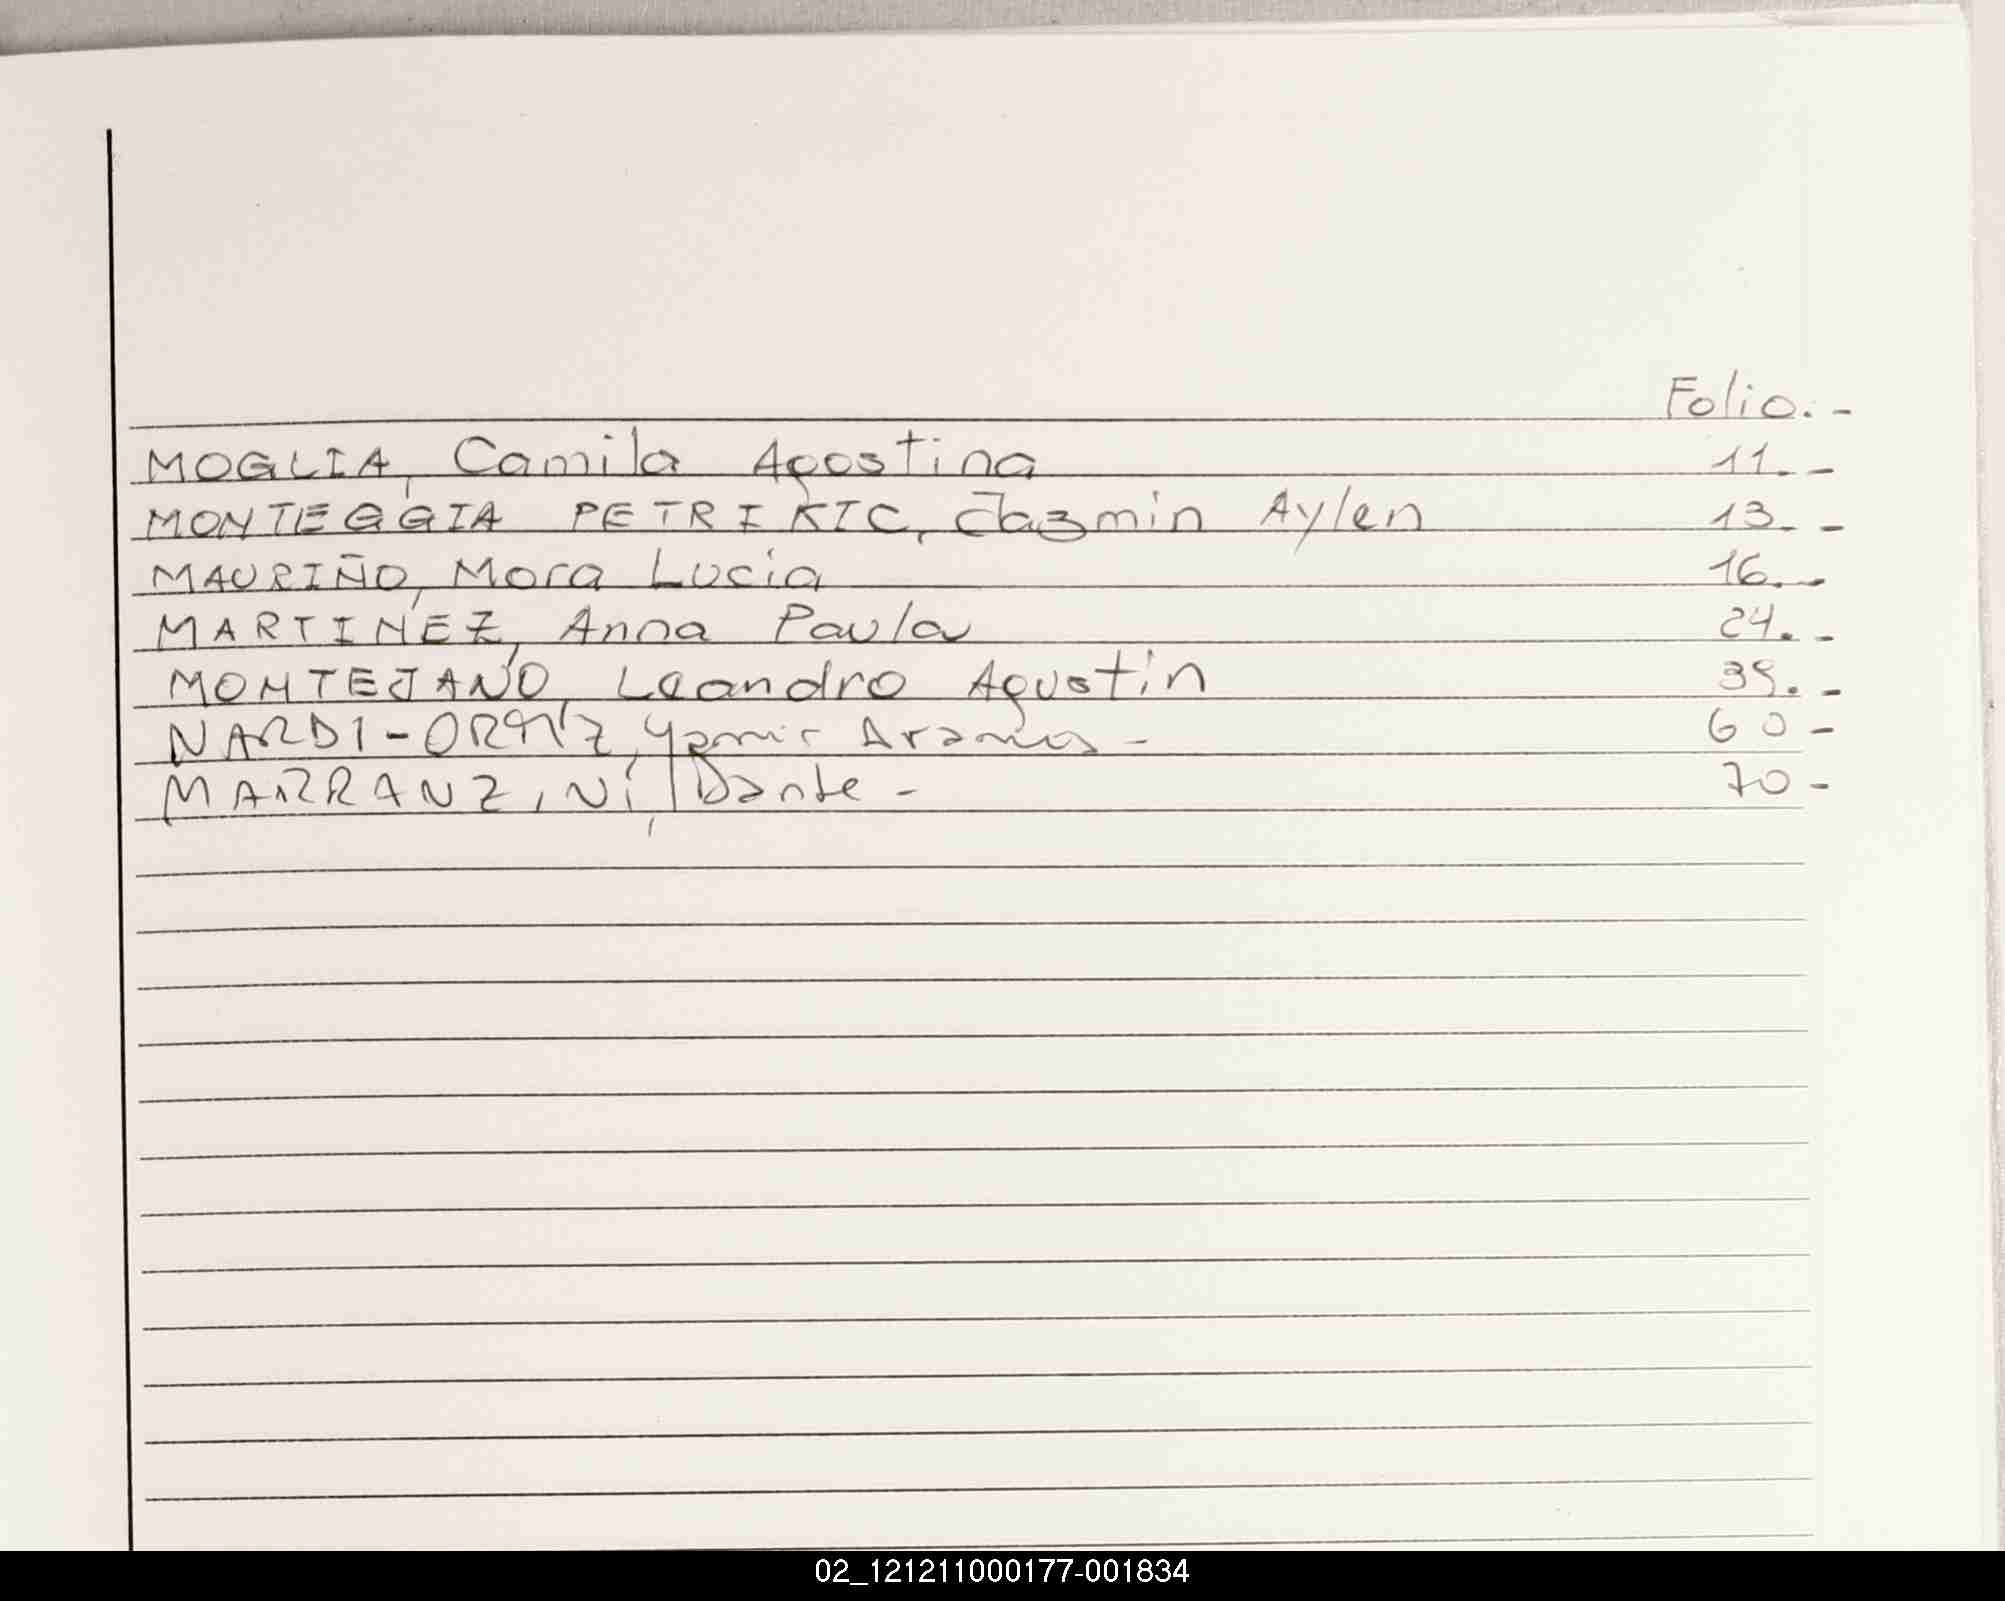 Folio.-
MOGLIA, Camila Agostina 11.-
MONTEGGIA PETRIKIC, Jazmin Aylen 13.-
MAURIÑO, Mora Lucia 16.-
MARTINEZ, Anna Paula 24.-
MONTEJANO, Leandro Agustin 39.-
NARDI-ORTIZ, Yamir - 60-
MARRANZINI, Dante - 70-
02_121211000177-001834